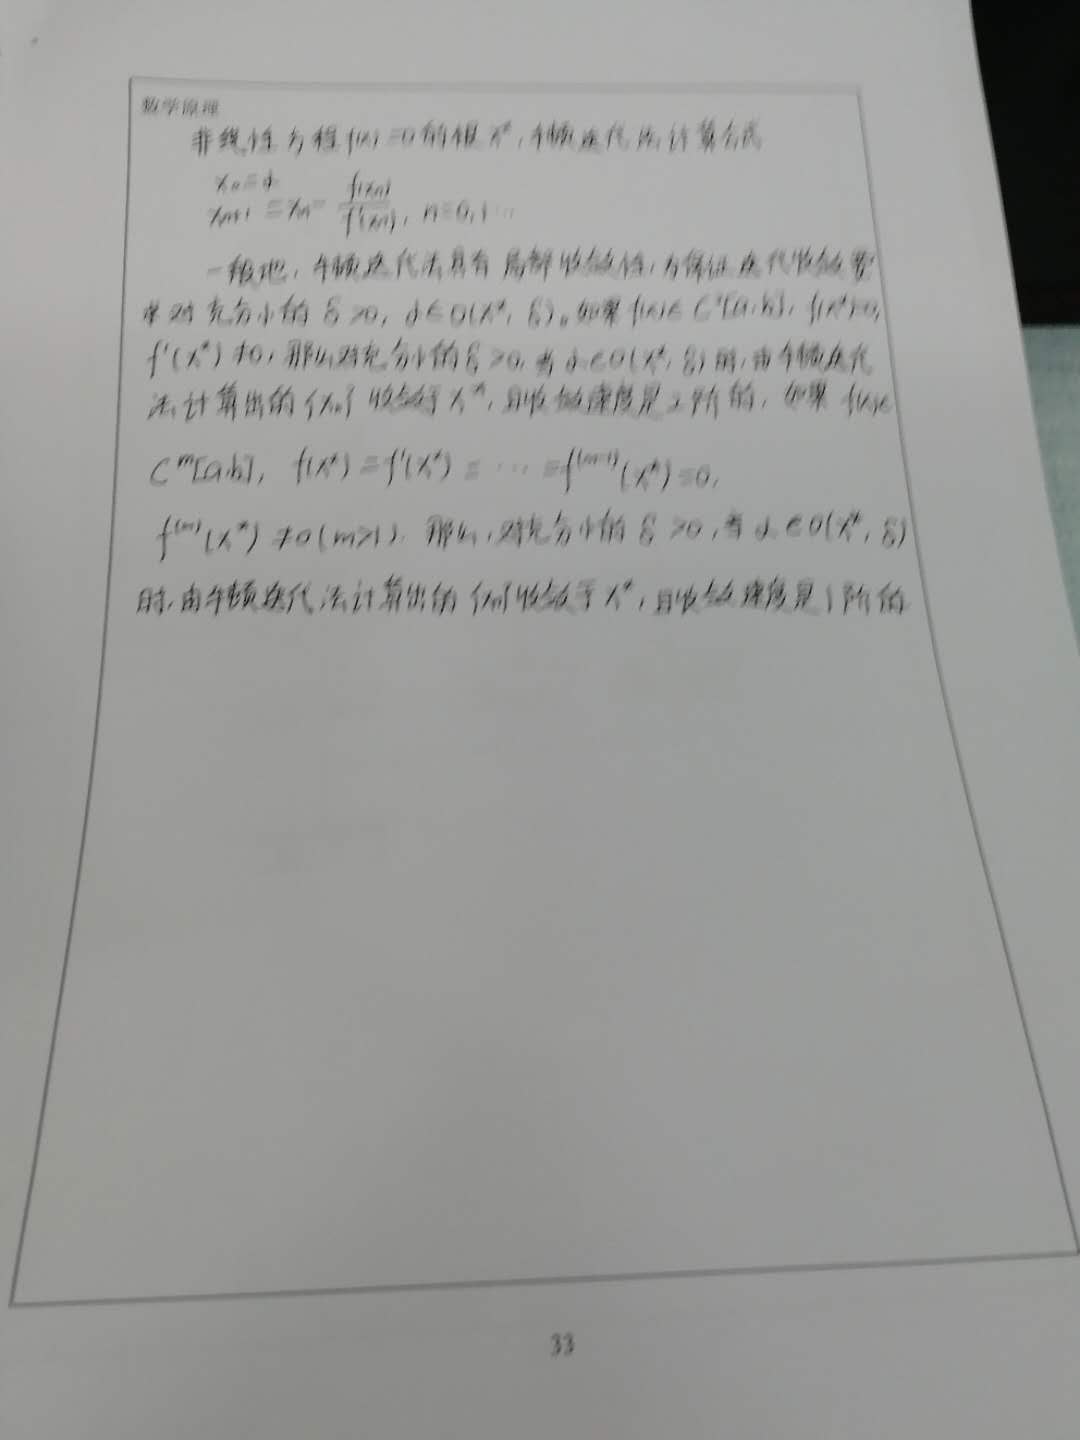 数学原理
非线性方程f(x)=0的根x*,牛顿迭代法计算公式
x₀=α
xₙ₊₁=xₙ-f(xₙ)/f'(xₙ), n=0,1…
一般地,牛顿迭代法具有局部收敛性,为保证迭代收敛要
求对充分小的δ>0, α∈O(x*,δ)。如果f(x)∈C²[a,b], f(x*)=0,
f'(x*)≠0,那么对充分小的δ>0,当α∈O(x*,δ)时,由牛顿迭代
法计算出的{xₙ}收敛于x*,且收敛速度是2阶的,如果f(x)∈
Cᵐ[a,b], f(x*)=f'(x*)=…=f⁽ᵐ⁻¹⁾(x*)=0,
f⁽ᵐ⁾(x*)≠0(m>1). 那么,对充分小的δ>0,当α∈O(x*,δ)
时,由牛顿迭代法计算出的{xₙ}收敛于x*,且收敛速度是1阶的
33